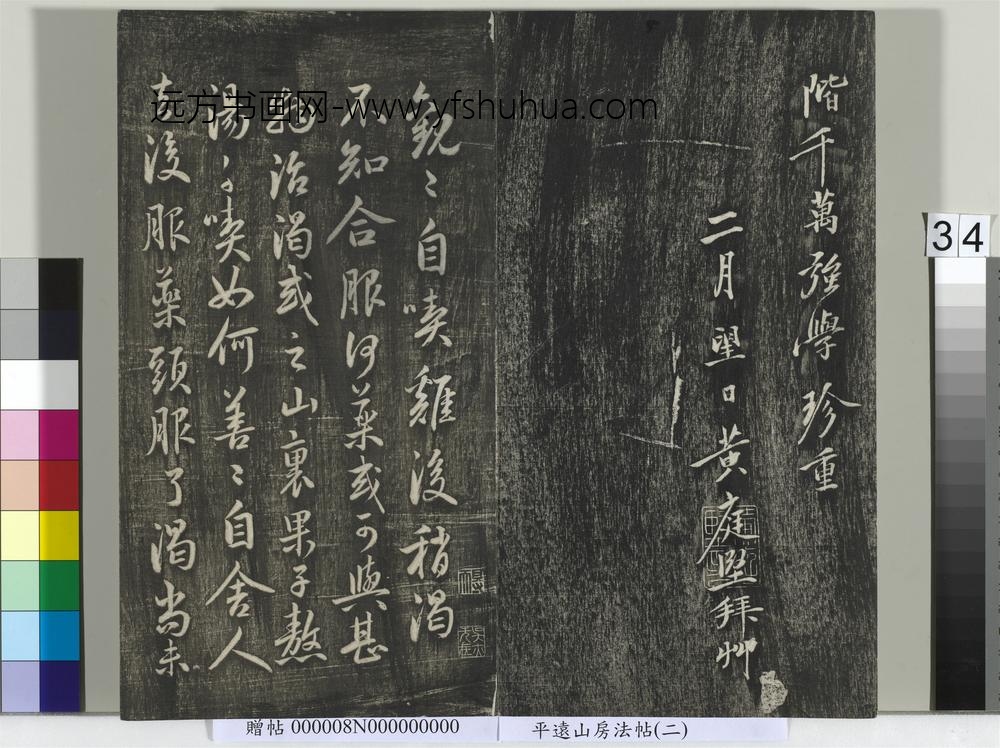 階千萬強學珍重
二月望日黃庭堅拜艸
自喫雞後稍渴
不知合服何藥或可與甚
治渴或之山裏果子熬
湯〻子喫如何善〻自舍人
去後服藥頭服了渴尚未
远方书画网-www.yfshuhua.com
34
贈帖 000008N000000000
平遠山房法帖(二)